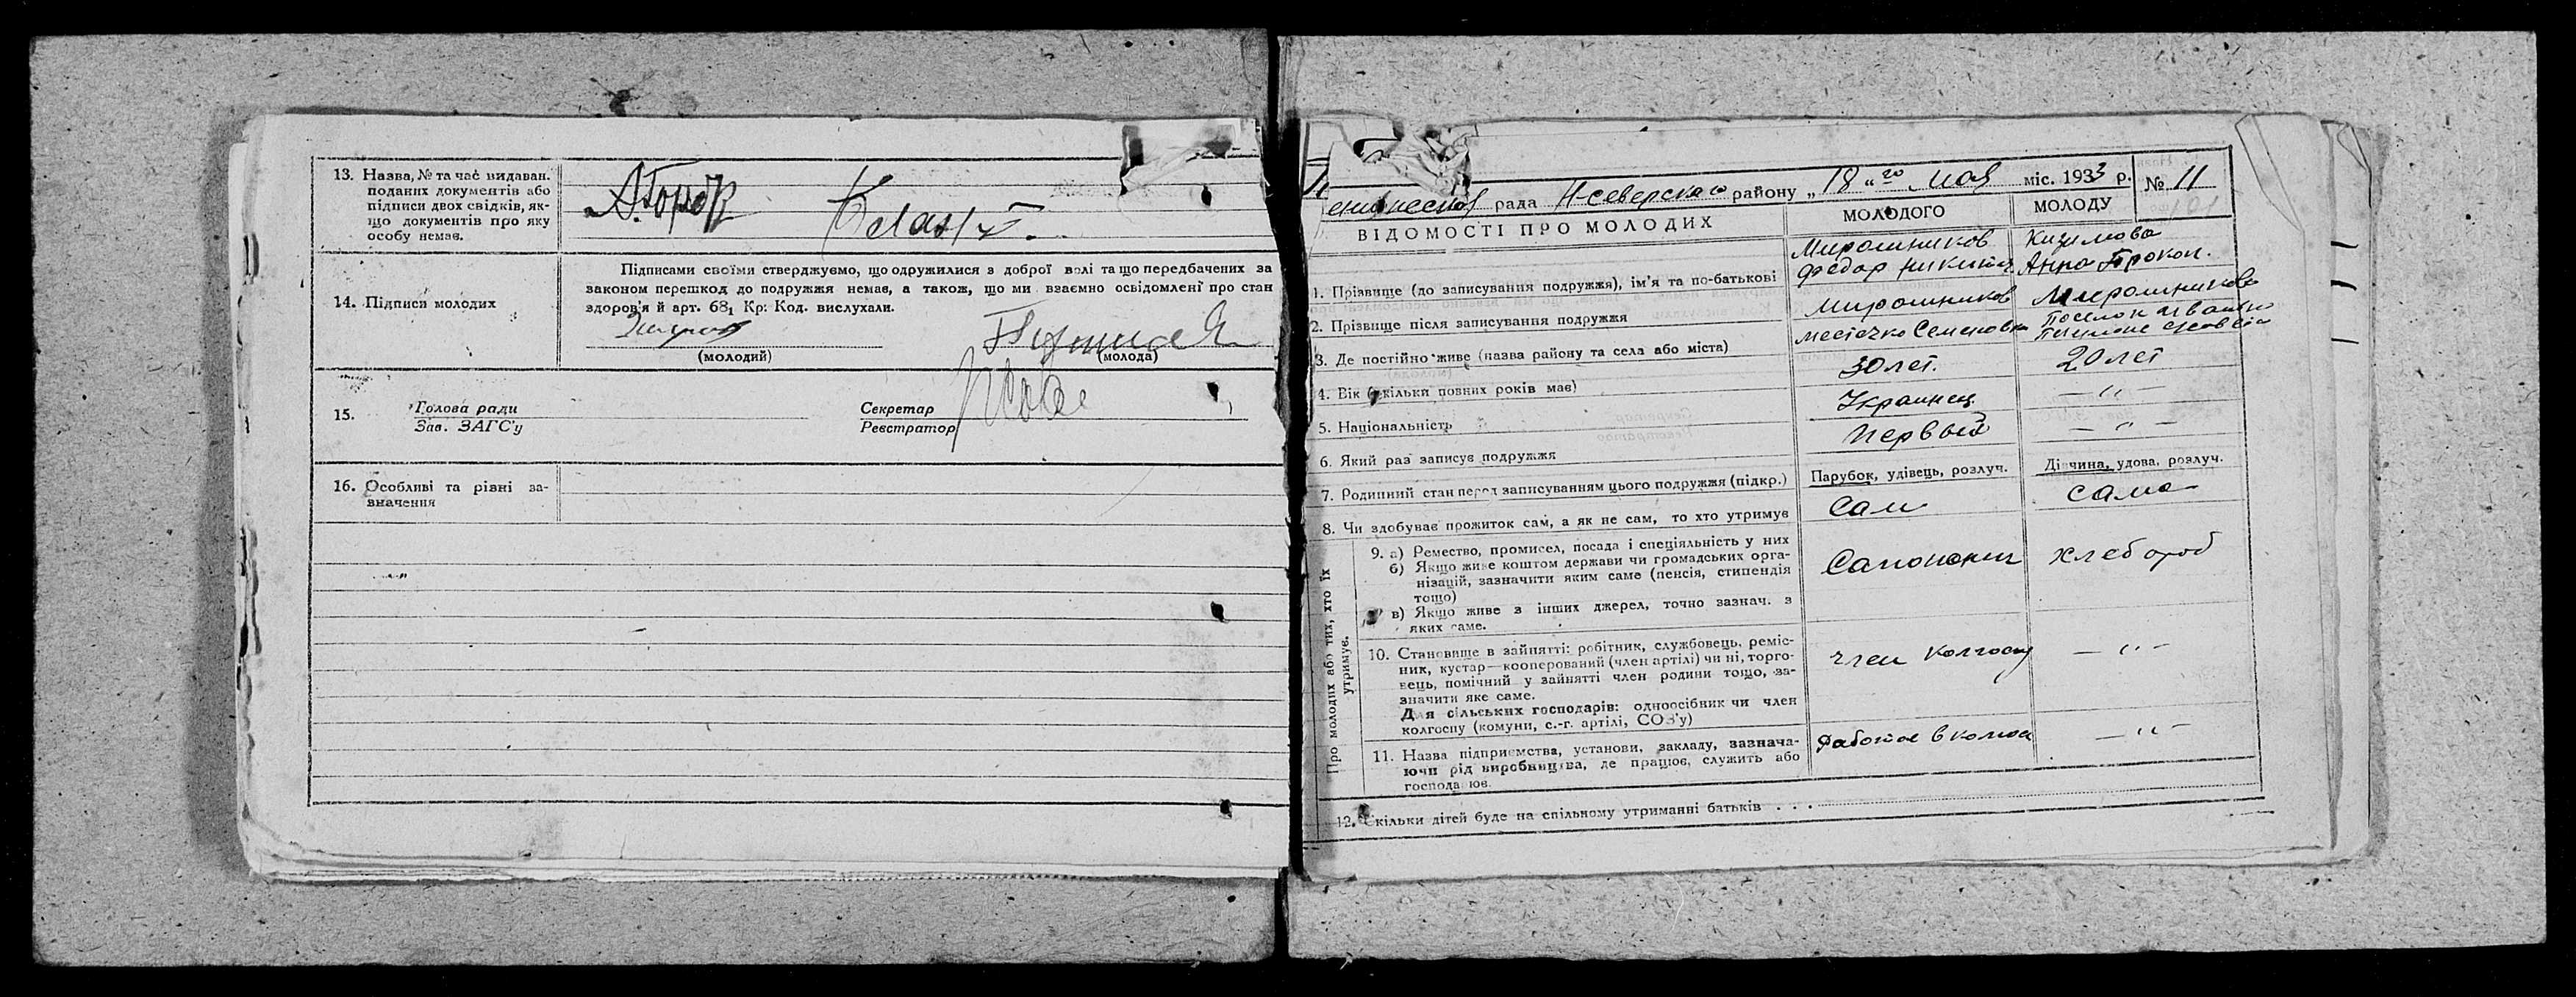 13. Назва, № та час видаван.
поданих документів або
підписи двох свідків, як-
що документів про яку
особу немає.
14. Підписи молодих
Підписами своїми стверджуємо, що одружилися з доброї волі та що передбачених за
законом перешкод до подружжя немає, а також, що ми взаємно освідомлені про стан
здоров'я й арт. 68₁ Кр. Код. вислухали.
(молодий)
(молода)
15. Голова ради
Зав. ЗАГС'у
Секретар
Реєстратор
16. Особливі та рівні за-
значення
рада Н-северского району „18“ го мая міс. 1933 р. № 11
ВІДОМОСТІ ПРО МОЛОДИХ
МОЛОДОГО
МОЛОДУ
1. Прізвище (до записування подружжя), ім'я та по-батькові
Мирошников
Федор
Анна Прокоп.
2. Прізвище після записування подружжя
Мирошников
Мирошникова
3. Де постійно живе (назва району та села або міста)
местечко Семеновка
поселок
4. Вік (скільки повних років має)
30 лет.
20 лет
5. Національність
Украинец
— " —
6. Який раз записує подружжя
Первый
— " —
7. Родинний стан перед записуванням цього подружжя (підкр.)
Парубок, удівець, розлуч.
Дівчина, удова, розлуч.
8. Чи здобуває прожиток сам, а як не сам, то хто утримує
Сам
сама
Про молодих або тих, хто їх
утримує.
9. а) Ремество, промисел, посада і спеціяльність у них
б) Якщо живе коштом держави чи громадських орга-
нізацій, зазначити яким саме (пенсія, стипендія
тощо)
в) Якщо живе з інших джерел, точно зазнач. з
яких саме.
Сапожник
хлебороб
10. Становище в зайнятті: робітник, службовець, реміс-
ник, кустар—кооперований (член артілі) чи ні, торго-
вець, помічний у зайнятті член родини тощо, за-
значити яке саме.
Для сільських господарів: одноосібник чи член
колгоспу (комуни, с.-г. артілі, СОЗ'у)
член колгоспу
— " —
11. Назва підприємства, установи, закладу, зазнача-
ючи рід виробництва, де працює, служить або
господарює.
работае в
— " —
12. Скільки дітей буде на спільному утриманні батьків . . .